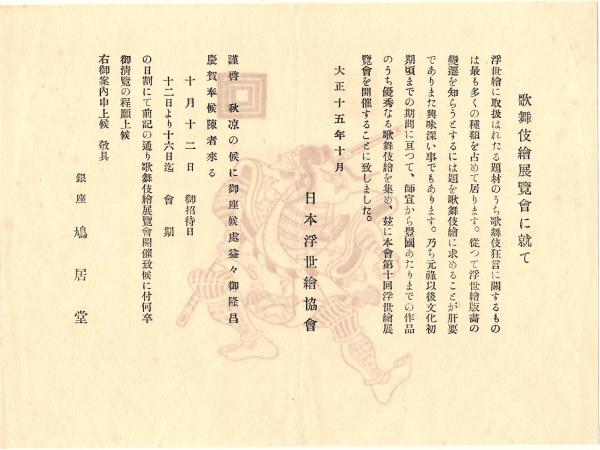 歌舞伎繪展覽會に就て
浮世繪に取扱はれたる題材のうち歌舞伎狂言に關するもの
は最も多くの種類を占めて居ります。從つて浮世繪版畵の
變遷を知らうとするには題を歌舞伎繪に求めることが肝要
でありまた興味深い事でもあります。乃ち元祿以後文化初
期頃までの期間に亙つて、師宣から豐國あたりまでの作品
のうち優秀なる歌舞伎繪を集め、玆に本會第十回浮世繪展
覽會を開催することに致しました。
大正十五年十月
日本浮世繪協會
謹啓 秋凉の候に御座候處益々御隆昌
慶賀奉候陳者來る
十月十二日 御招待日
十二日より十六日迄 會期
の日割にて前記の通り歌舞伎繪展覽會開催致候に付何卒
御清覽の程願上候
右御案內申上候 敬具
銀座 鳩居堂